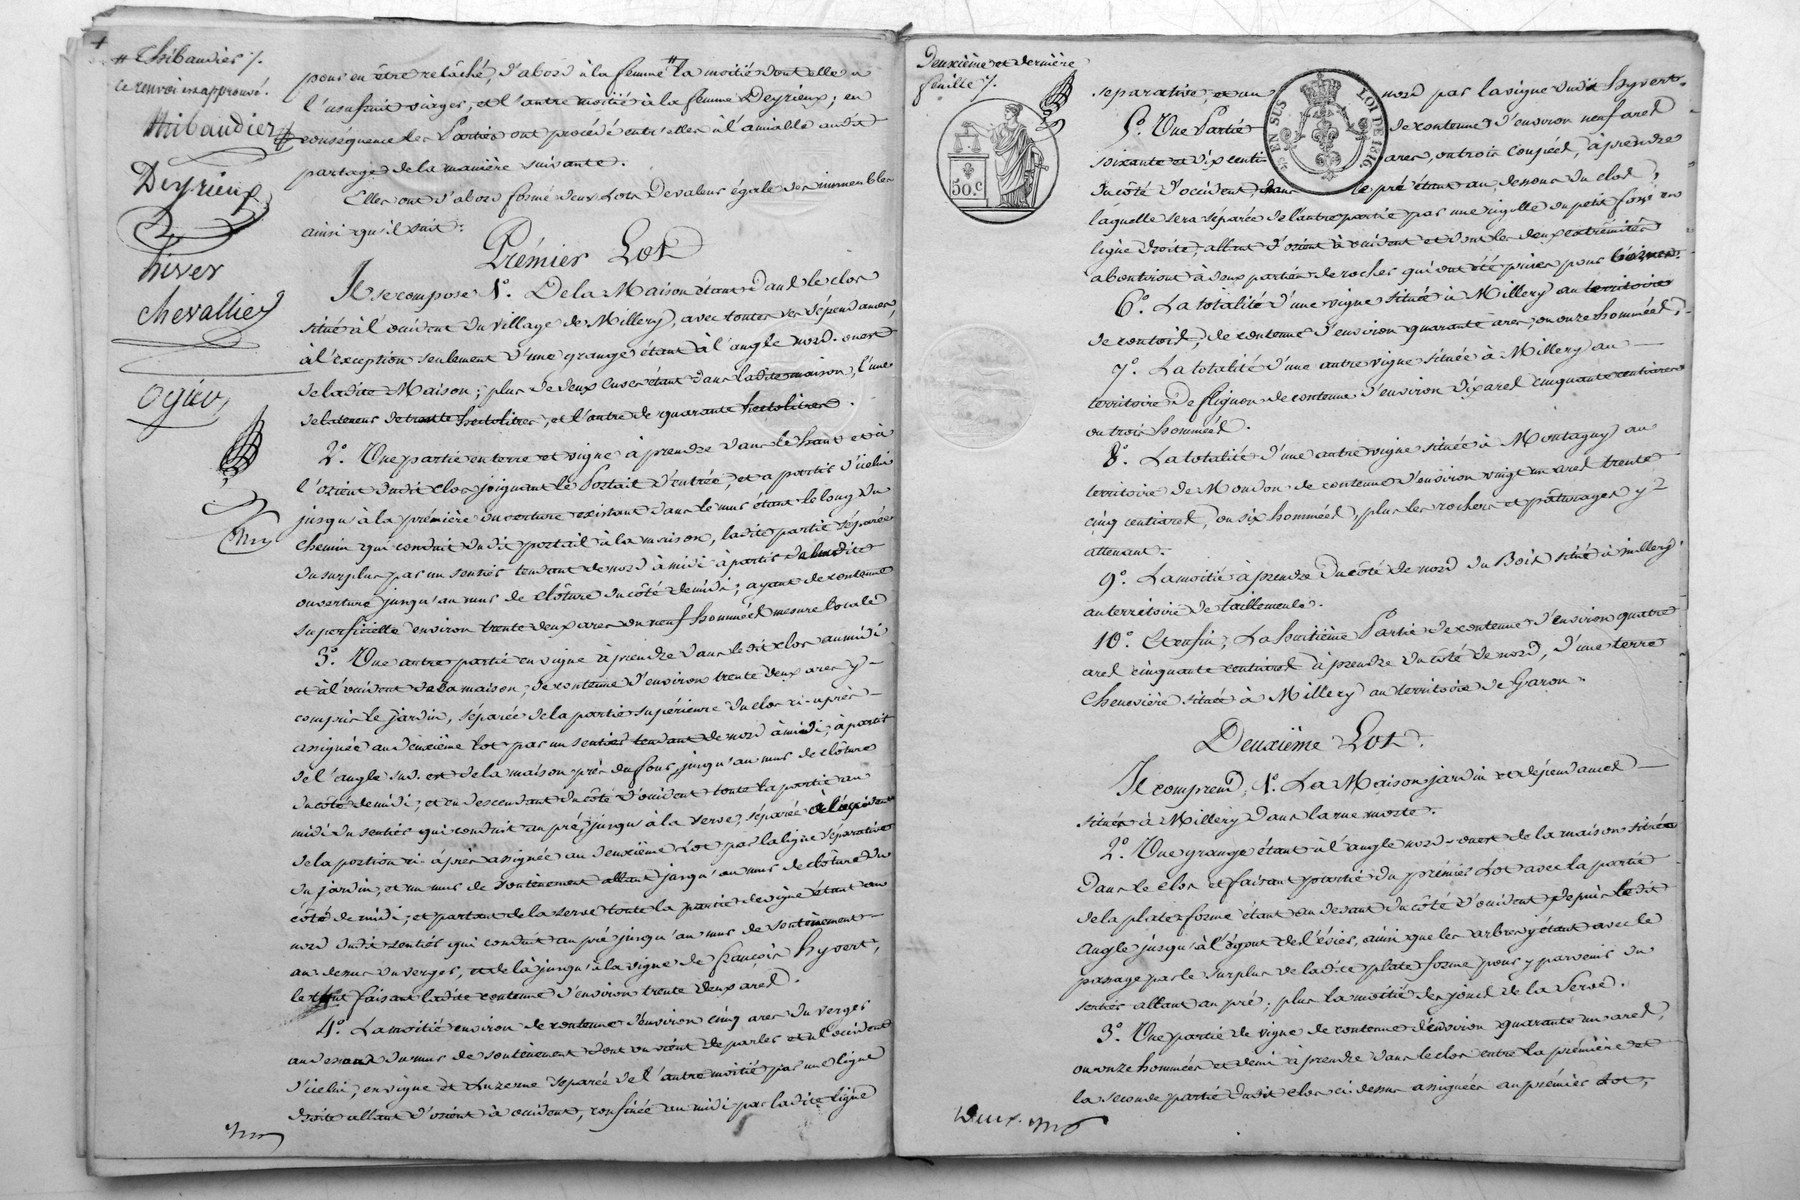 # Thibaudier ./.
ce renvoi est approuvé.
Thibaudier
Deyrieux
hiver
chevallier
ogier
pour en être relâché, d'abord à la femme # la moitié dont elle a
l'usufruit viager, et l'autre moitié à la femme Deyrieux; en
conséquence les Parties ont procédé entr'elles à l'amiable audit
partage de la manière suivante.
Elles ont d'abord formé deux Lots de valeur égale des immeubles
ainsi qu'il suit:
Prémier Lot
Il se compose 1º. De la Maison étant dans le clos
situé à l'occident du village de Millery, avec toutes ses dépendances,
à l'exception seulement d'une grange étant à l'angle nord-ouest
de ladite Maison; plus de deux cuves étant dans ladite maison, l'une
de la teneur de trente hectolitres, et l'autre de quarante hectolitres.
2º. Une partie en terre et vigne à prendre dans le haut et à
l'orient dudit clos joignant le Portail d'entrée, et à partir d'icelui
jusqu'à la prémière ouverture existant dans le mur étant le long du
chemin qui conduit dudit portail à la maison, ladite partie séparée
du surplus par un sentier tendant de nord à midi à partir de ladite
ouverture jusqu'au mur de clôture du côté de midi; ayant de contenue
superficielle environ trente deux ares ou neuf hommées mesure locale
3º. Une autre partie en vigne à prendre dans ledit clos au midi
et à l'occident de la maison, de contenue d'environ trente deux ares y
compris le jardin, séparée de la partie supérieure du clos ci-après
assignée au deuxième lot par un sentier tendant de nord à midi, à partir
de l'angle sud-est de la maison près du four, jusqu'au mur de clôture
du côté de midi; et en descendant du côté d'occident toute la partie au
midi du sentier qui conduit au pré, jusqu'à la serve, séparée à l'occident
de la portion ci-après assignée au deuxième Lot par la ligne séparative
du jardin, et un mur de soutènement allant jusqu'au mur de clôture du
côté de midi; et partant de la serve toute la partie de vigne étant au
nord dudit sentier qui conduit au pré jusqu'au mur de soutènement
au dessus du verger, et de là jusqu'à la vigne de françois hyvert,
le tout faisant ladite contenue d'environ trente deux ares.
4º. La moitié environ de contenue d'environ cinq ares du verger
au dessous du mur de soutènement dont on vient de parler et à l'occident
d'icelui, en vigne et Luzerne séparée de l'autre moitié par une ligne
droite allant d'orient à occident, confinée au midi par ladite ligne
Deuxième et dernière
feuille ./.
50.c
EN SUS
LOI DE 1816
séparative, et au nord par la vigne dudit hyvert.
5º. Une Partie de contenue d'environ neuf ares
soixante et dix centiares, ou trois coupées, à prendre
du côté d'occident, dans le pré étant au dessous du clos,
laquelle sera séparée de l'autre partie par une rigolle ou petit fossé en
ligne droite, allant d'orient à occident et dont les deux extrémités
aboutiront à deux parties de rocher qui ont été prises pour bornes.
6º. La totalité d'une vigne située à Millery au territoire
de de contenue d'environ quarante ares, ou onze hommées;
7º. La totalité d'une autre vigne située à Millery au
territoire De flignon de contenue d'environ dix ares cinquante centiares
ou trois hommées.
8º. La totalité d'une autre vigne située à Montagny au
territoire de Moudon de contenue d'environ vingt un ares trente
cinq centiares, ou six hommées, plus les rochers et pâturages y
attenant.
9º. La moitié à prendre du côté de nord du Bois situé à millery
au territoire de taillemente.
10º. Et enfin, La huitième Partie de contenue d'environ quatre
ares cinquante centiares à prendre du côté de nord, d'une terre
Chenevière située à Millery au territoire de Garon.
Deuxième Lot.
Il comprend, 1º. La Maison jardin et dépendances
situés à Millery dans la rue morte.
2º. Une grange étant à l'angle nord-ouest de la maison située
Dans le clos et faisant partie du prémier Lot avec la partie
de la plate forme étant au devant du côté d'occident depuis ledit
Angle jusqu'à l'égout de l'évier, ainsi que les arbres y étant avec le
passage par le surplus de ladite plate forme pour y parvenir du
sentier allant au pré; plus la moitié des joncs de la Serve.
3º. Une partie de vigne de contenue d'environ quarante un ares,
ou onze hommées et demi à prendre dans le clos entre la prémière et
la seconde partie dudit clos ci-dessus assignées au prémier Lot,